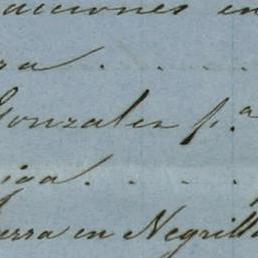 acciones en
ra . . . . .
Gonzales p.a
iga . . . .
erra en Negrill